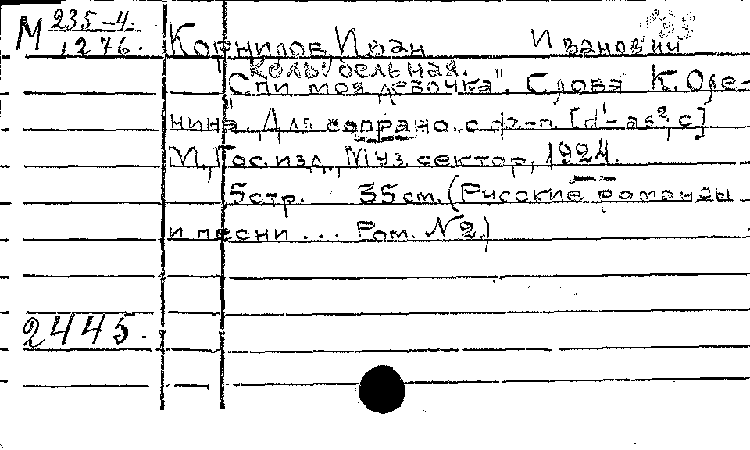 М 235-4.
1276.
Корнилов Иван Иванович
Колыбельная.
"Спи моя девочка". Слова К. Оле-
нина. Для сопрано с ф-п. [d'-as², c]
М., Гос. изд., Муз. сектор, 1924.
5 стр. 35 см. (Русские романсы
и песни ... Ром. № 2.)
2445.